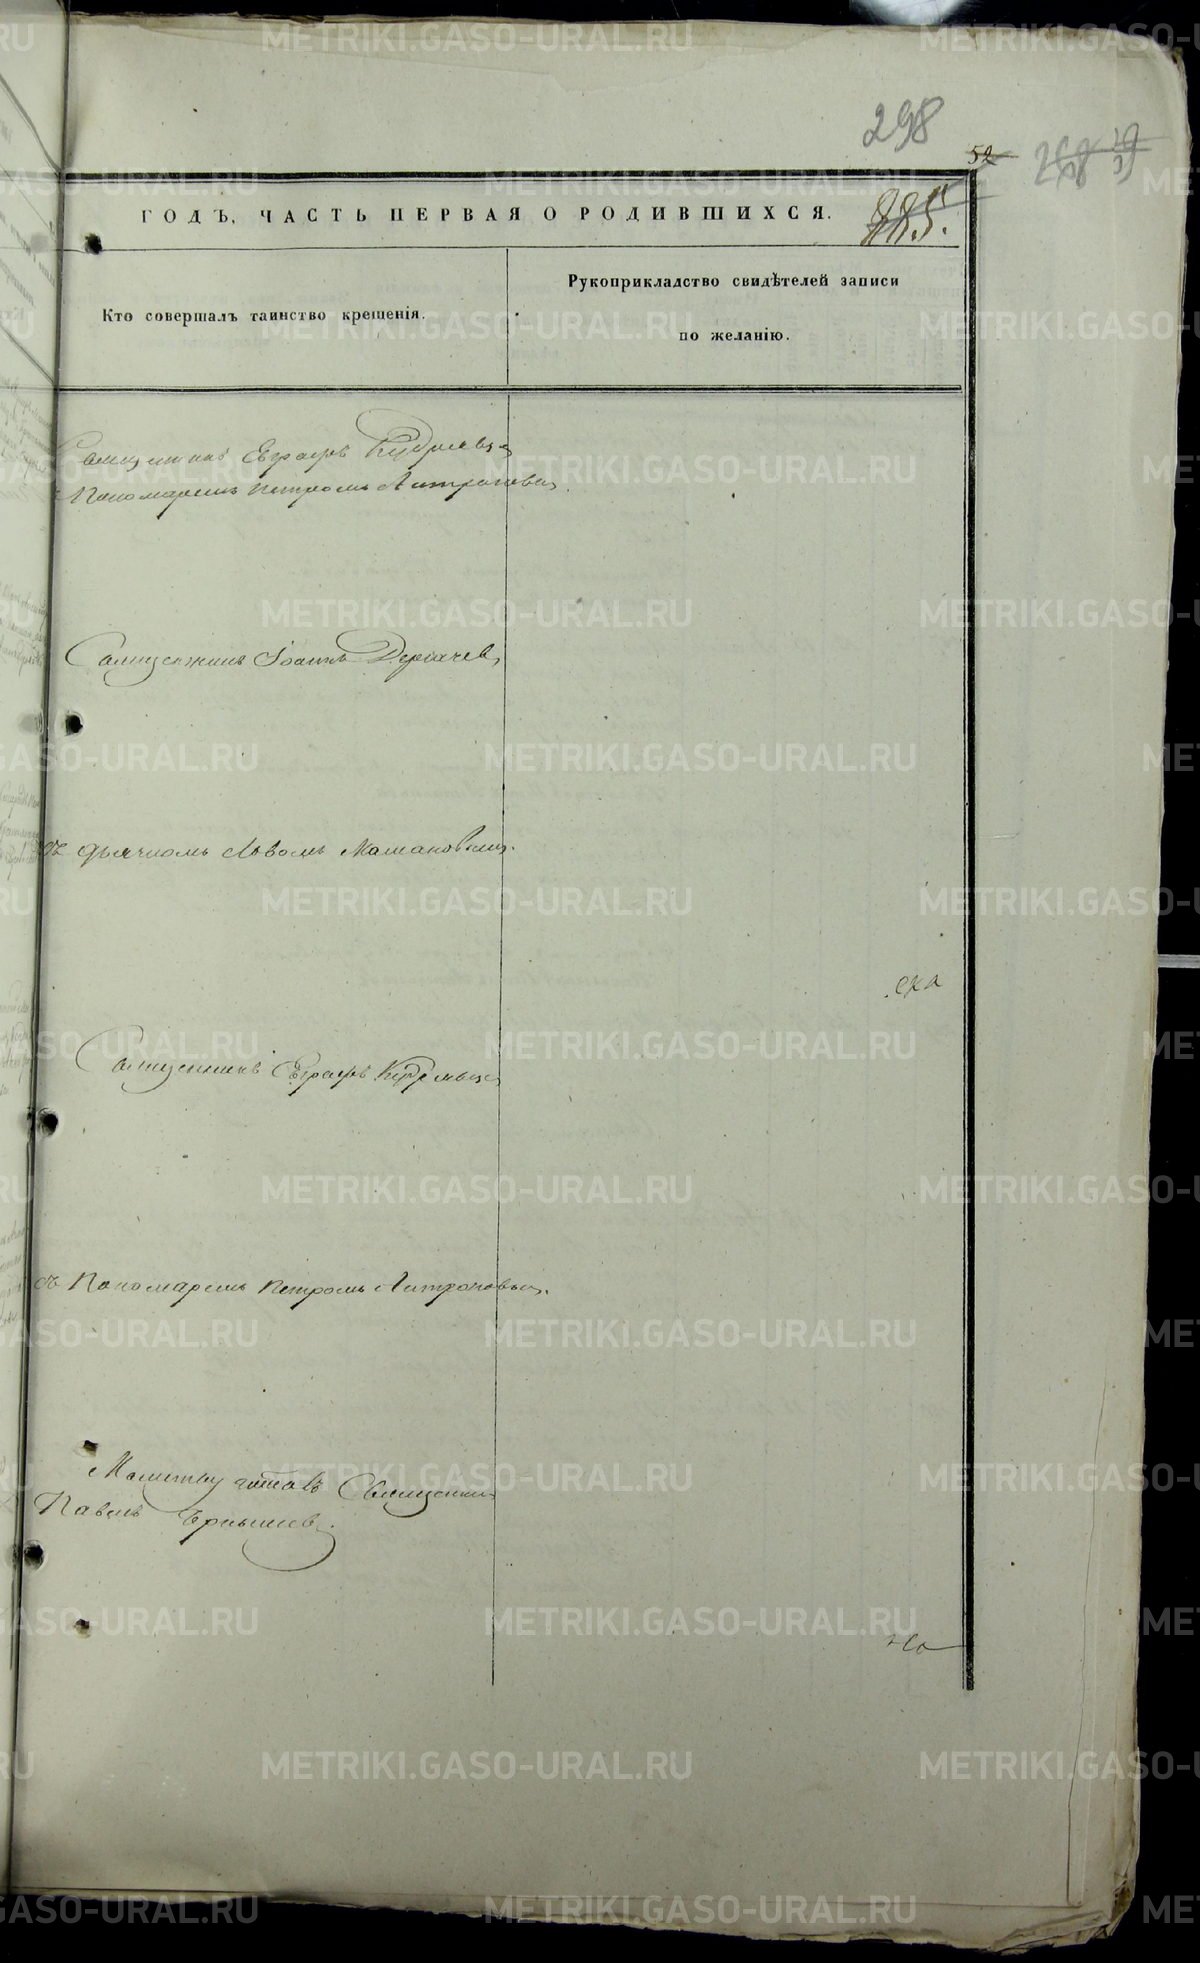 298
52
ГОДЪ, ЧАСТЬ ПЕРВАЯ О РОДИВШИХСЯ.
225.
Рукоприкладство свидѣтелей записи
по желанію.
Кто совершалъ таинство крещенія.
Священникъ Евграфъ Кудрявцевъ
Пономаремъ Петромъ
Священникъ Іоаннъ Дергачевъ
съ дьячкомъ Львомъ
Священникъ Евграфъ Кудрявцевъ
съ Пономаремъ Петромъ
Молитву читалъ Священникъ
Павелъ
METRIKI.GASO-URAL.RU